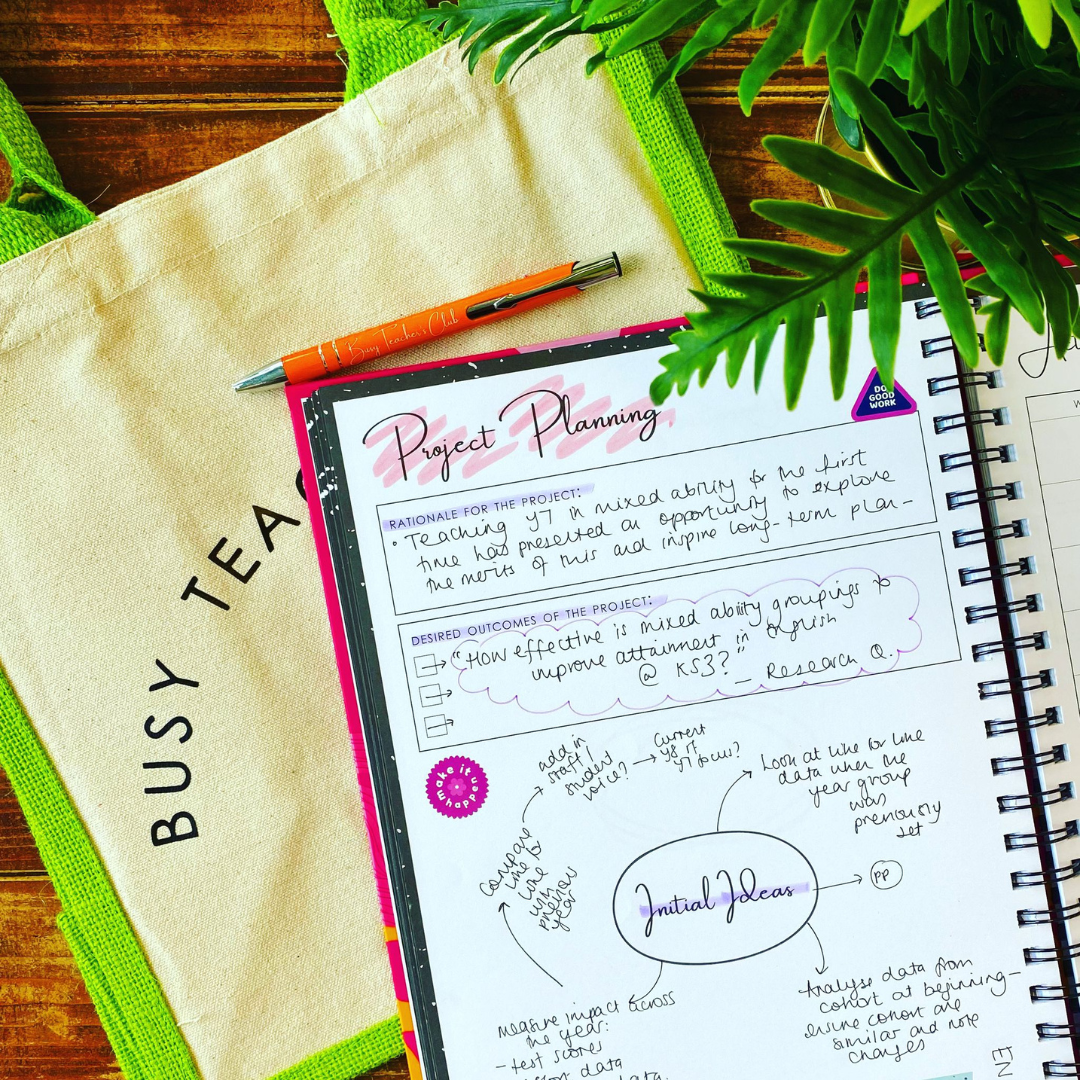 BUSY TEAC
Busy Teacher's Club
Project Planning
DO
GOOD
WORK
RATIONALE FOR THE PROJECT:
• Teaching y7 in mixed ability for the first
time has presented an opportunity to explore
the merits of this and inspire long-term plan-
DESIRED OUTCOMES OF THE PROJECT:
"How effective is mixed ability groupings to
improve attainment in English
@ KS3?"
— Research Q.
make it happen
add in
staff /
student
voice?
→ current
y8 if
y7 focus?
Look at like for like
data when the
year group
was
previously
set
compare
like for
like
with
previous
year
Initial Ideas
PP
Analyse data from
cohort at beginning –
ensure cohort are
similar and note
changes
measure impact across
the year:
- test scores
data
data.
EN
W